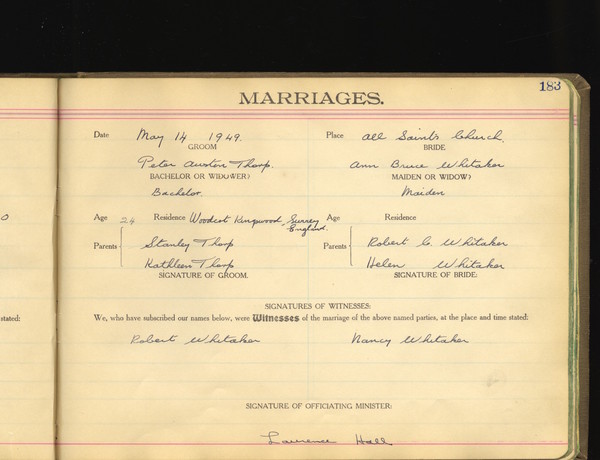 183
MARRIAGES.
Date May 14 1949. Place All Saints Church.
GROOM BRIDE
Peter Austen Thorp. Ann Bruce Whitaker
BACHELOR OR WIDOWER? MAIDEN OR WIDOW?
Bachelor. Maiden
0 Age 24 Residence Woodcot Kingwood, Surrey England. Age Residence
Parents Stanley Thorp Parents Robert C. Whitaker
Kathleen Thorp Helen Whitaker
SIGNATURE OF GROOM. SIGNATURE OF BRIDE:
SIGNATURES OF WITNESSES:
stated: We, who have subscribed our names below, were Witnesses of the marriage of the above named parties, at the place and time stated:
Robert Whitaker Nancy Whitaker
SIGNATURE OF OFFICIATING MINISTER:
Lawrence Hall